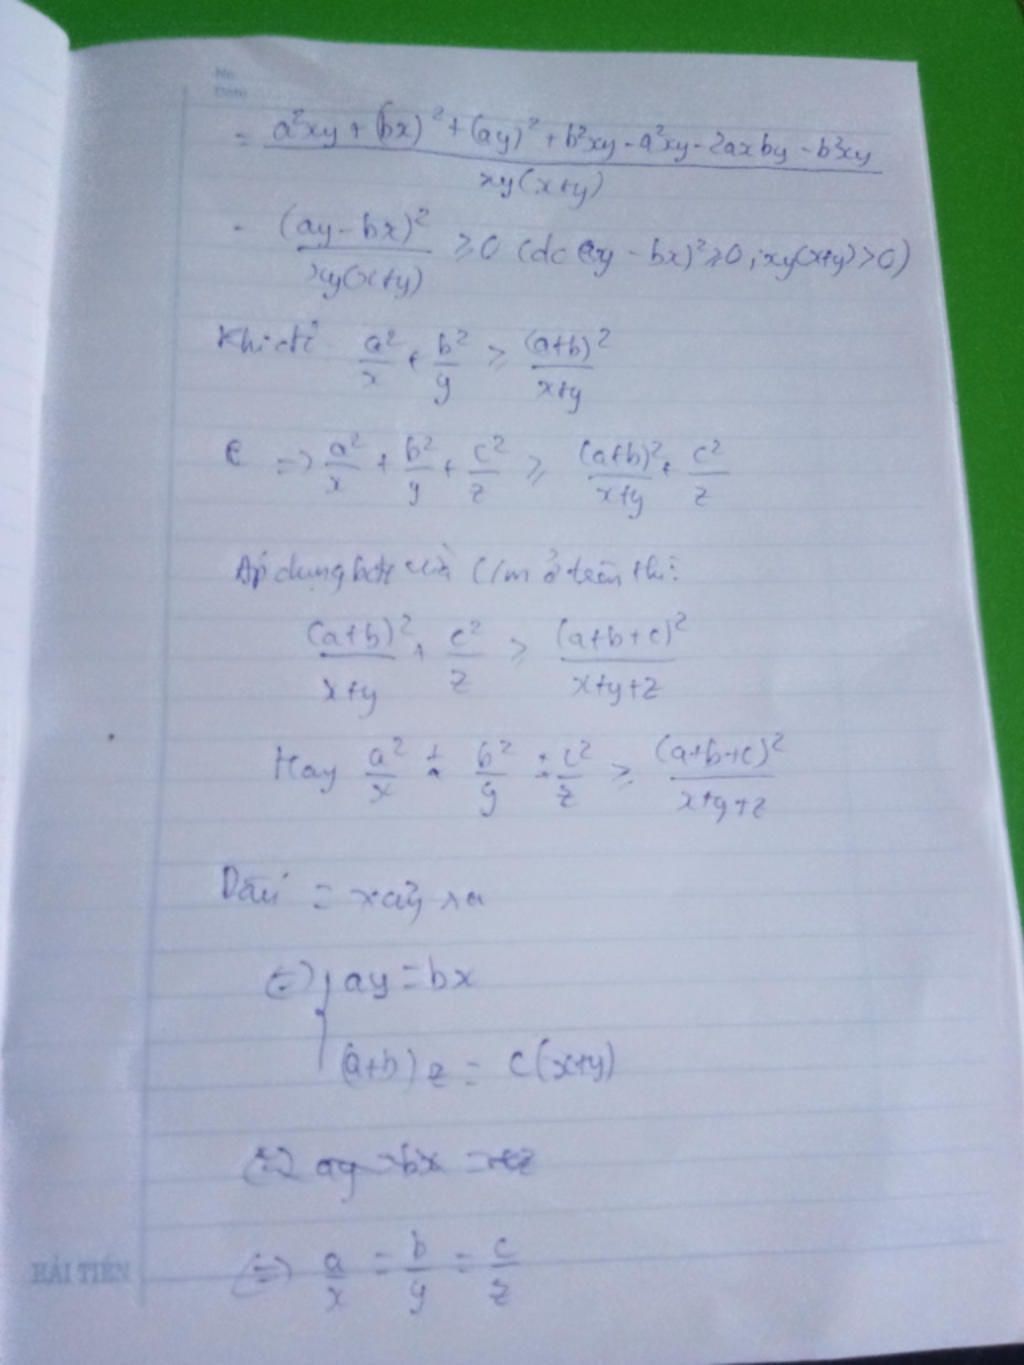 No.
Date
= \frac{a²xy + (bx)² + (ay)² + b²xy - a²xy - 2axby - b²xy}{xy(x+y)}
- \frac{(ay - bx)²}{xy(x+y)} ≥ 0 (do (ay - bx)² ≥ 0 ; xy(x+y) > 0)
Khi đó \frac{a²}{x} + \frac{b²}{y} ≥ \frac{(a+b)²}{x+y}
=> \frac{a²}{x} + \frac{b²}{y} + \frac{c²}{z} ≥ \frac{(a+b)²}{x+y} + \frac{c²}{z}
Áp dụng bđt vừa c/m ở trên thì:
\frac{(a+b)²}{x+y} + \frac{c²}{z} ≥ \frac{(a+b+c)²}{x+y+z}
Hay \frac{a²}{x} + \frac{b²}{y} + \frac{c²}{z} ≥ \frac{(a+b+c)²}{x+y+z}
Dấu = xảy ra
(=) { ay = bx
(a+b)z = c(x+y)
(=) \frac{a}{x} = \frac{b}{y} = \frac{c}{z}
HẢI TIẾN